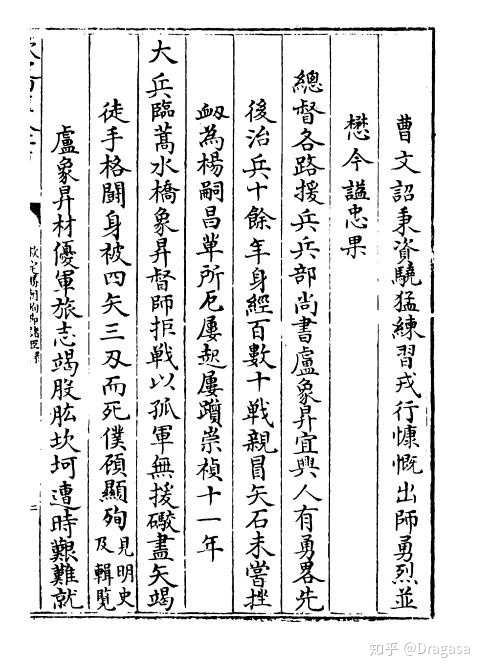 曹文詔秉資驍猛練習戎行慷慨出師勇烈並
懋今諡忠果
總督各路援兵兵部尚書盧象昇宜興人有勇畧先
後治兵十餘年身經百數十戰親冒矢石未嘗挫
衂為楊嗣昌軰所戹屢起屢躓崇禎十一年
大兵臨蒿水橋象昇督師拒戰以孤軍無援礮盡矢竭
徒手格鬬身被四矢三刃而死僕顧顯殉見明史及輯覽
盧象昇材優軍旅志竭股肱坎坷遭時艱難就
欽定勝朝殉節諸臣錄
二
知乎 @Dragasa